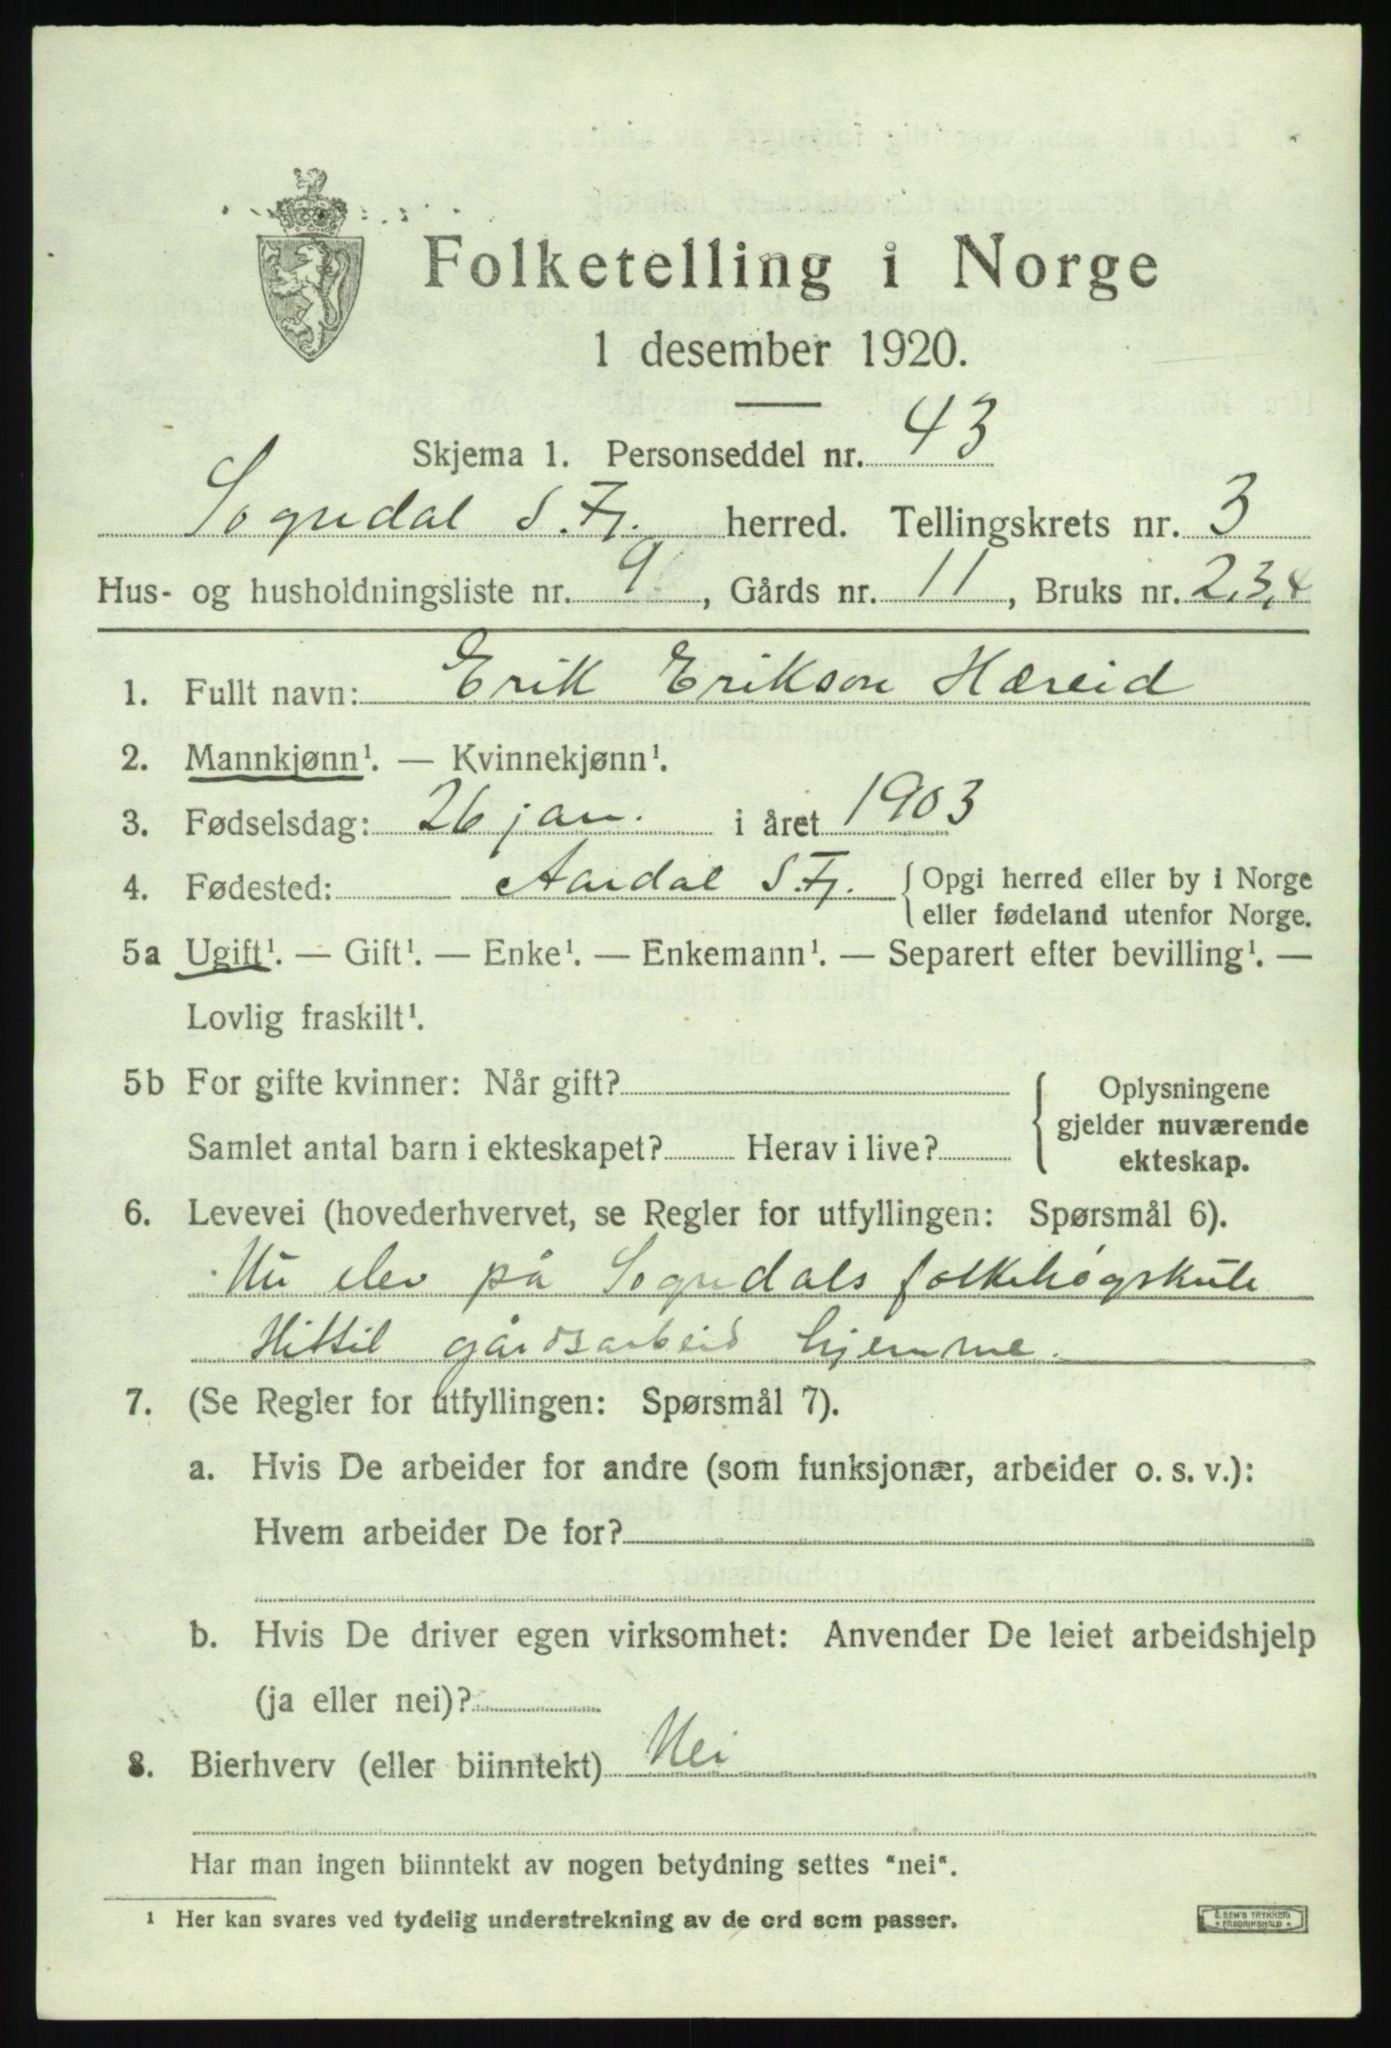 Folketelling i Norge
1 desember 1920.
Skjema 1. Personseddel nr. 43
Sogndal S. Fj. herred. Tellingskrets nr. 3
Hus- og husholdningsliste nr. 9, Gårds nr. 11, Bruks nr. 2,3,4
1. Fullt navn: Erik Erikson Hæreid
2. Mannkjønn¹. — Kvinnekjønn¹.
3. Fødselsdag: 26 jan. i året 1903
4. Fødested: Aardal S. Fj. { Opgi herred eller by i Norge
eller fødeland utenfor Norge.
5a Ugift¹. — Gift¹. — Enke¹. — Enkemann¹. — Separert efter bevilling¹. —
Lovlig fraskilt¹.
5b For gifte kvinner: Når gift?
Samlet antal barn i ekteskapet? Herav i live?
{ Oplysningene
gjelder nuværende
ekteskap.
6. Levevei (hovederhvervet, se Regler for utfyllingen: Spørsmål 6).
Nu elev på Sogndals folkehøgskule
Hittil gårdsarbeid hjemme.
7. (Se Regler for utfyllingen: Spørsmål 7).
a. Hvis De arbeider for andre (som funksjonær, arbeider o. s. v.):
Hvem arbeider De for?
b. Hvis De driver egen virksomhet: Anvender De leiet arbeidshjelp
(ja eller nei)?
8. Bierhverv (eller biinntekt) Nei
Har man ingen biinntekt av nogen betydning settes "nei".
¹ Her kan svares ved tydelig understrekning av de ord som passer.
SEM'S TRYKKERI
FREDRIKSHALD